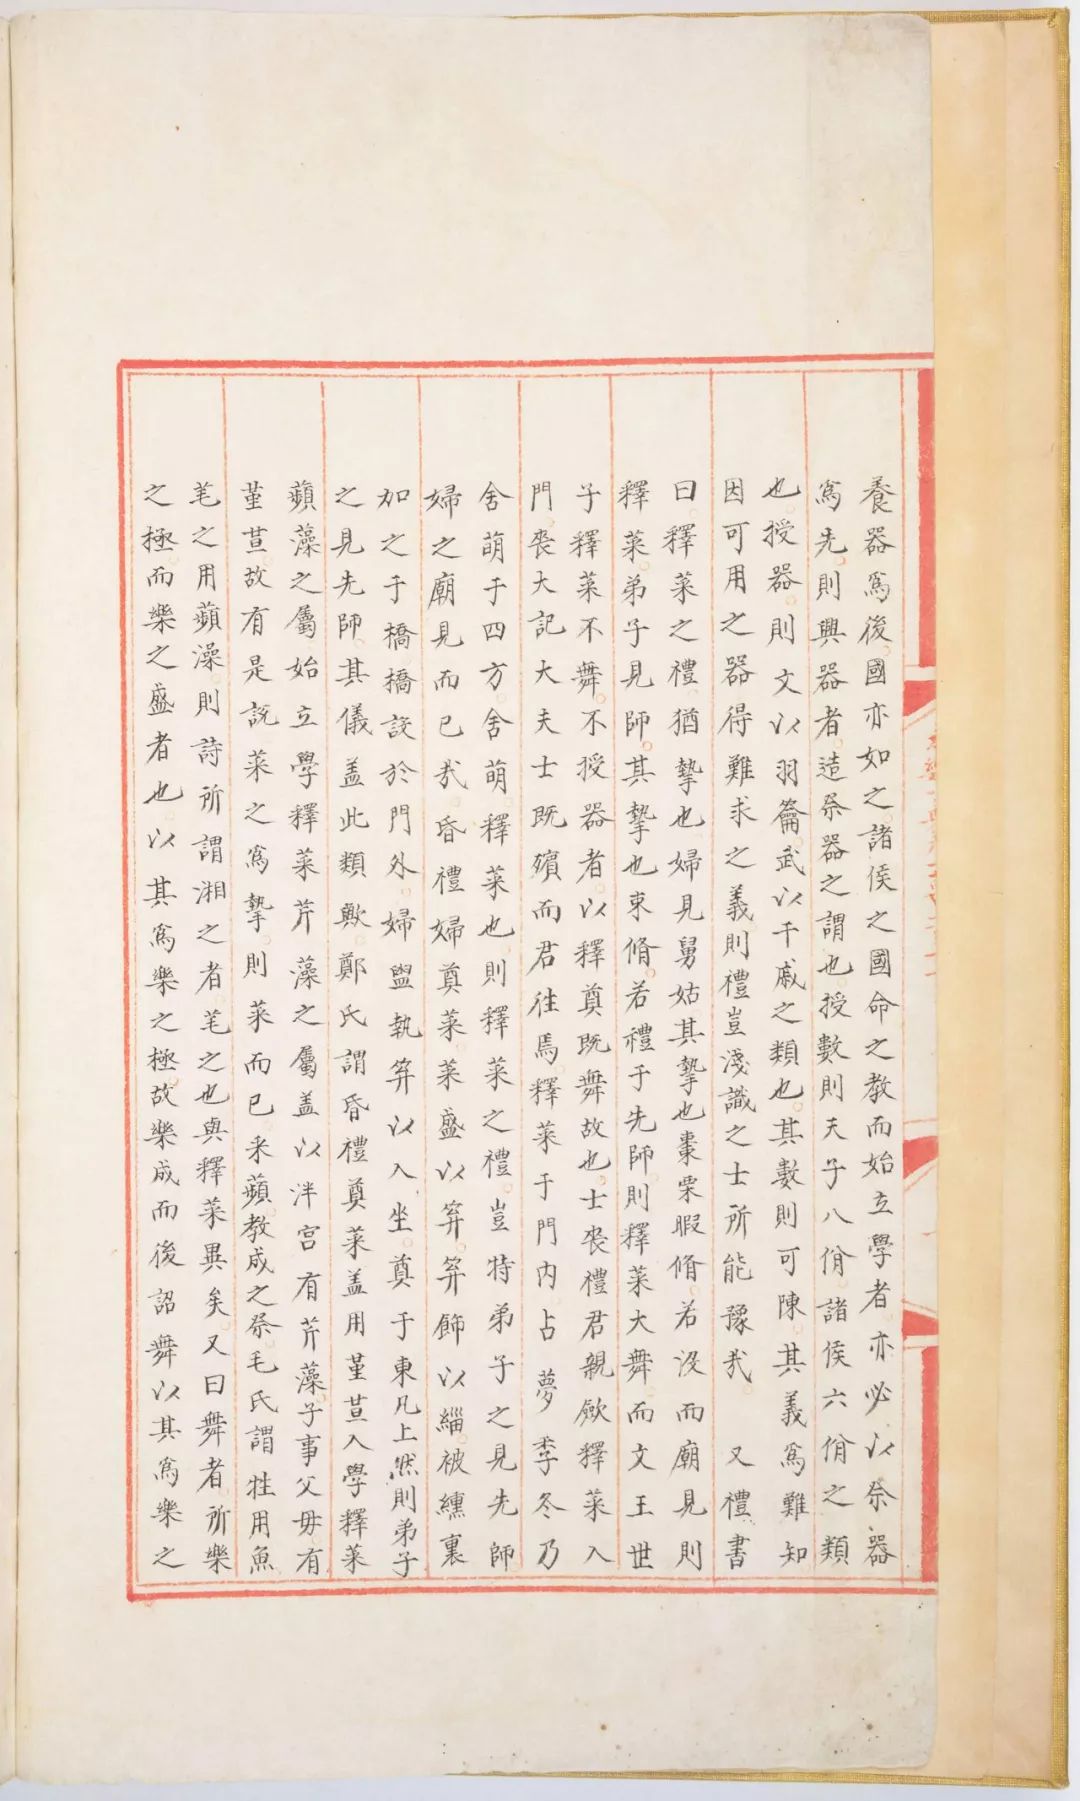 養器爲後國亦如之諸侯之國命之教而始立學者亦必以祭器
爲先則興器者造祭器之謂也授數則天子八佾諸侯六佾之類
也授器則文以羽籥武以干戚之類也其數則可陳其義爲難知
因可用之器得難求之義則禮豈淺識之士所能豫哉 又禮書
曰釋菜之禮猶摯也婦見舅姑其摯也棗栗暇脩若没而廟見則
釋菜弟子見師其摯也束脩若禮于先師則釋菜大舞而文王世
子釋菜不舞不授器者以釋奠既舞故也士喪禮君親歛釋菜入
門喪大記大夫士既殯而君往焉釋菜于門内占夢季冬乃
舍萌于四方舍萌釋菜也則釋菜之禮豈特弟子之見先師
婦之廟見而已哉昏禮婦奠菜菜盛以笲笲飾以緇被纁裏
加之于橋橋設於門外婦盥執笲以入坐奠于東凡上然則弟子
之見先師其儀盖此類歟鄭氏謂昏禮奠菜盖用堇荁入學釋菜
蘋藻之屬始立學釋菜芹藻之屬盖以泮宫有芹藻子事父毋有
堇荁故有是説菜之爲摯則菜而已采蘋教成之祭毛氏謂牲用魚
芼之用蘋澡則詩所謂湘之者芼之也與釋菜異矣又曰舞者所樂
之極而樂之盛者也以其爲樂之極故樂成而後詔舞以其爲樂之